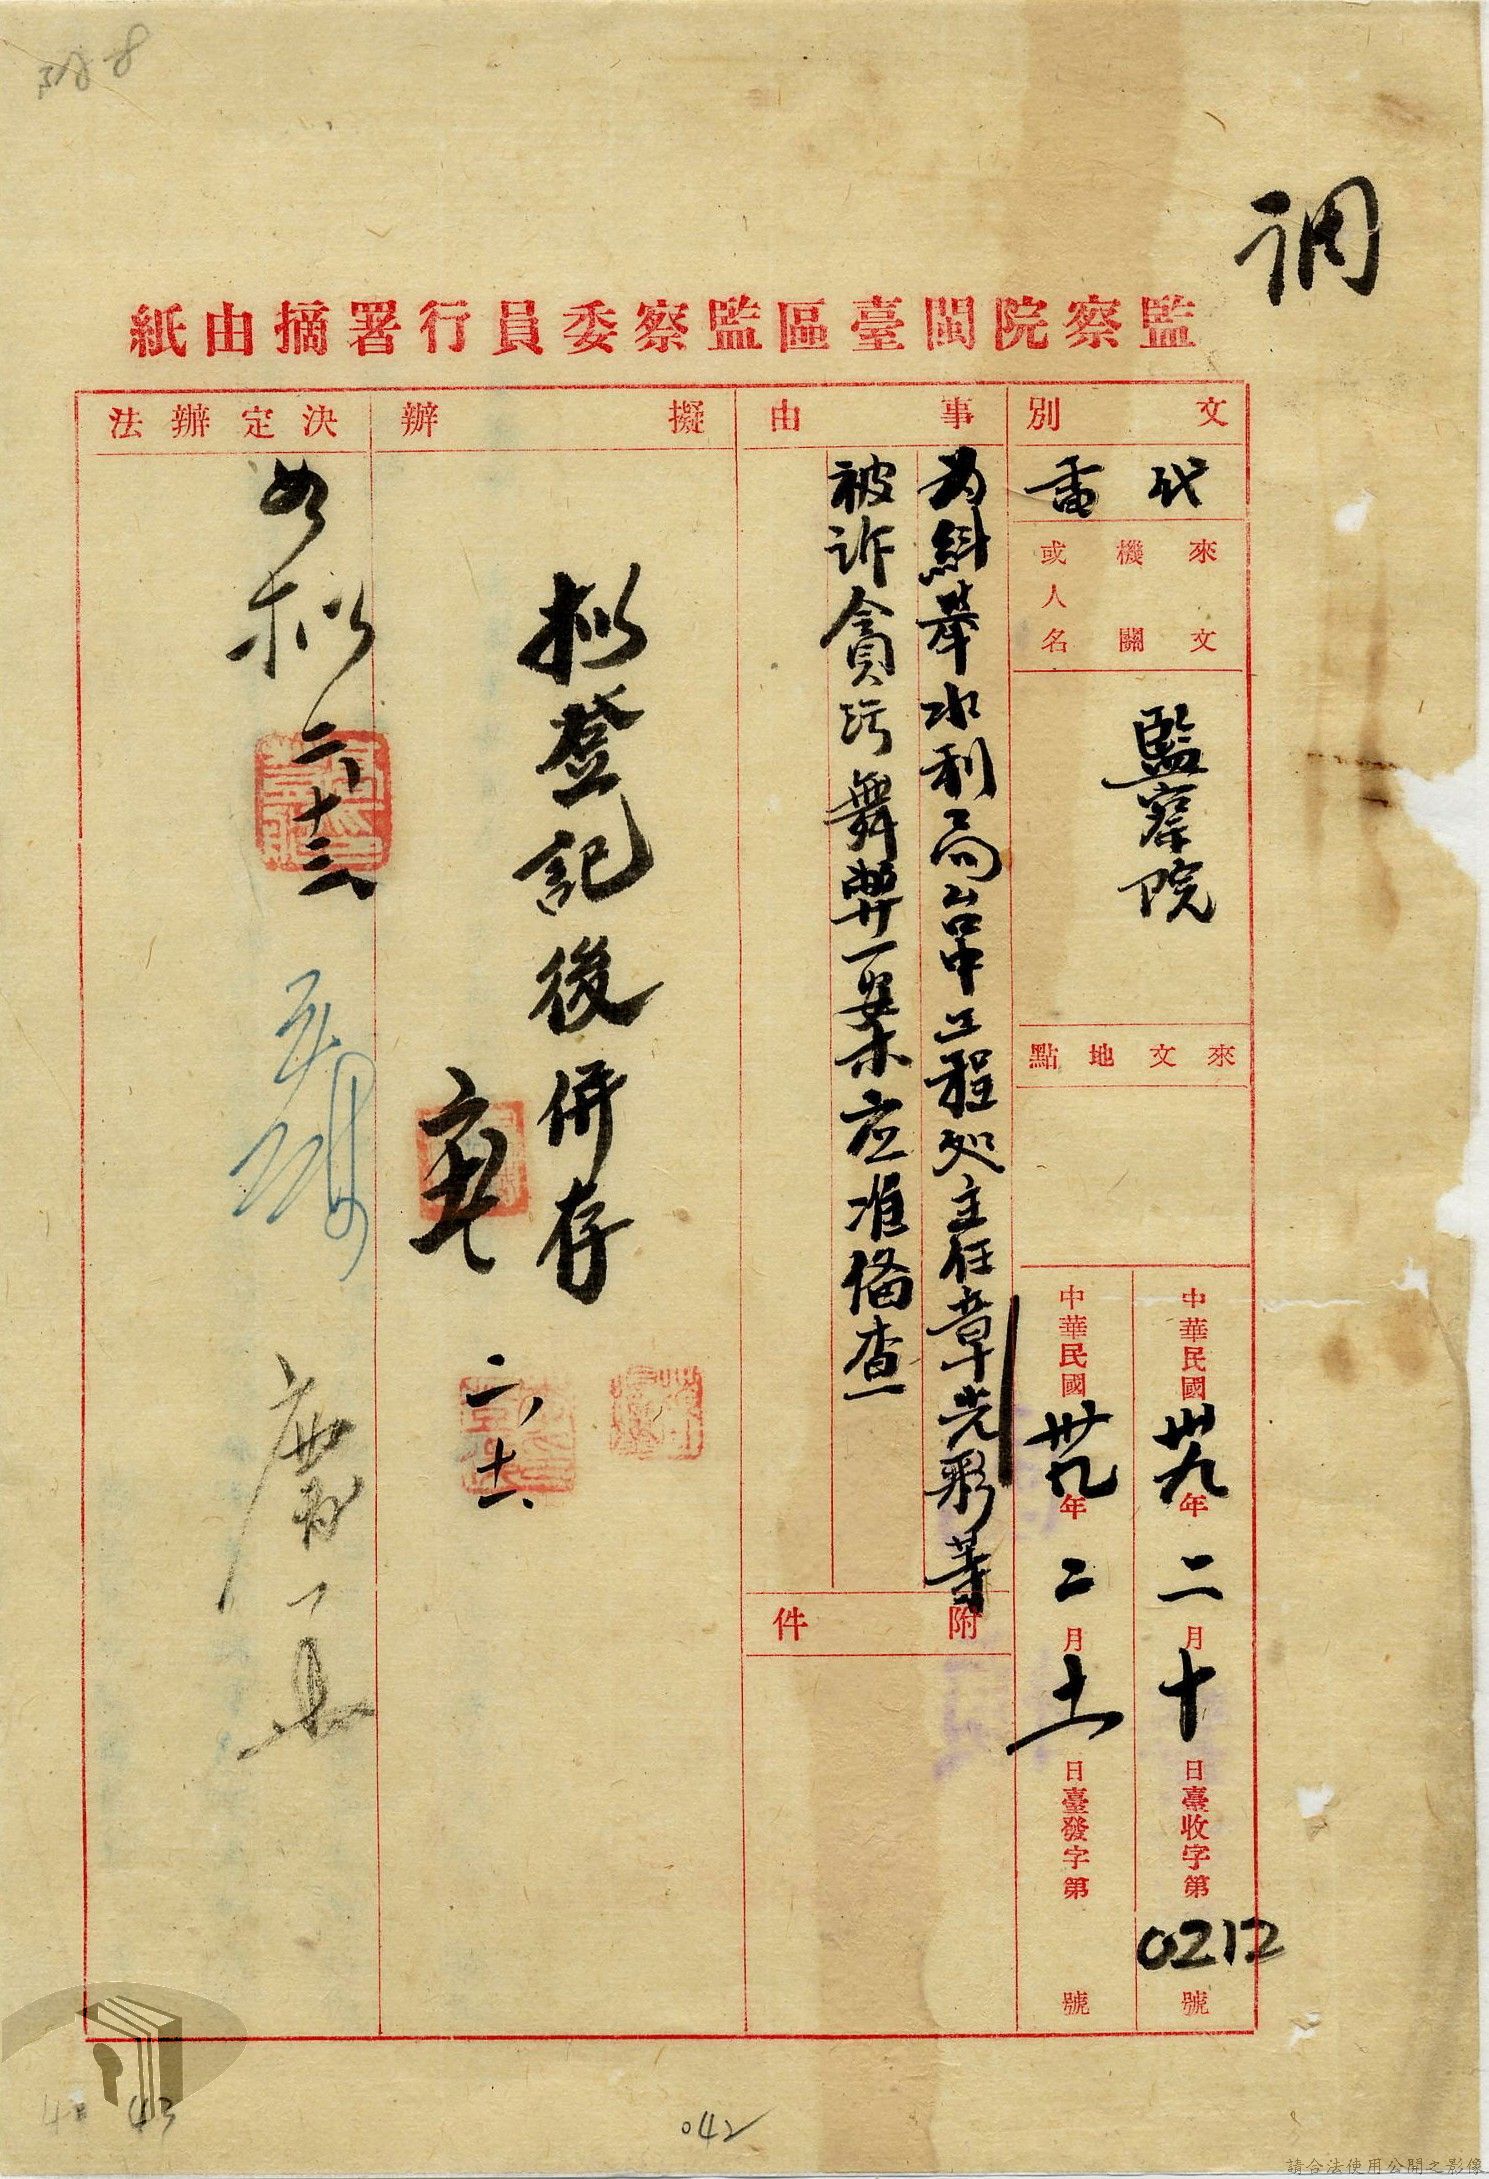 調
監察院閩臺區監察委員行署摘由紙
文別
代電
來文機關或人名
監察院
來文地點
中華民國卅九年二月十日臺收字第0212號
中華民國卅九年二月十一日臺發字第號
事由
為糾舉水利局台中工程処主任章光彩等
被訴貪污舞弊一案未应准備查
附件
擬辦
拟登記後併存
二、十一、
決定辦法
如拟
二、十三
042
43
請合法使用公開之影像